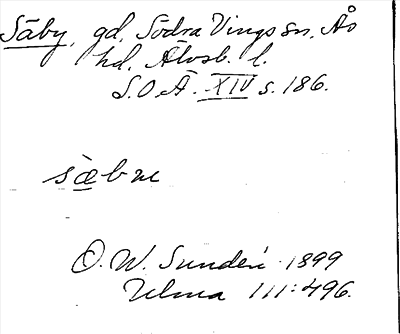 Säby, gd, Södra Vings sn. Ås
hd. Älvsb. l.
S.O.Ä. XIV s. 186.
O. W. Sundén 1899
Ulma 111:496.